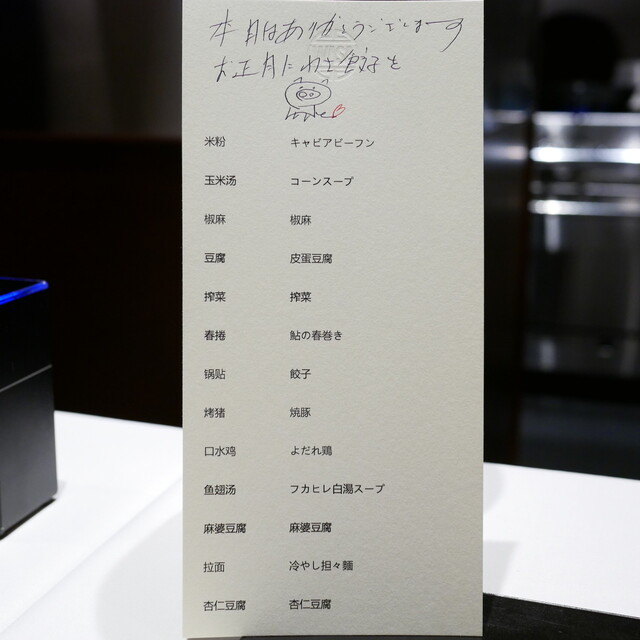 本日はありがとうございまーす
お正月にわさ餃子を
米粉 キャビアビーフン
玉米汤 コーンスープ
椒麻 椒麻
豆腐 皮蛋豆腐
搾菜 搾菜
春捲 鮎の春巻き
锅贴 餃子
烤猪 焼豚
口水鸡 よだれ鶏
鱼翅汤 フカヒレ白湯スープ
麻婆豆腐 麻婆豆腐
拉面 冷やし担々麺
杏仁豆腐 杏仁豆腐